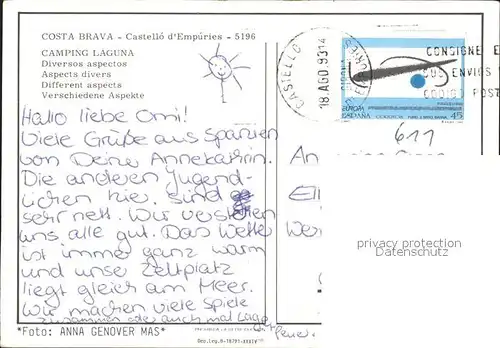 COSTA BRAVA - Castelló d'Empúries - 5196
CAMPING LAGUNA
Diversos aspectos
Aspects divers
Different aspects
Verschiedene Aspekte
CASTELLO EMPURIES
18.AGO.93 14
CONSIGNE E
SUS ENVIOS
CODIGO POST
ESPAÑA CORREOS 45
611
Hallo liebe Omi!
Viele Grüße aus Spanien
von Deine Annekatrin.
Die anderen Jugend-
lichen hier sind
sehr nett. Wir verstehen
uns alle gut. Das Wetter
ist immer ganz warm
und unse Zeltplatz
liegt gleich am Meer.
Wir machen viele Spiele
zusammen oder auch mal Lager
feuer.
An
Ell
Wer
privacy protection
Datenschutz
*Foto: ANNA GENOVER MAS*